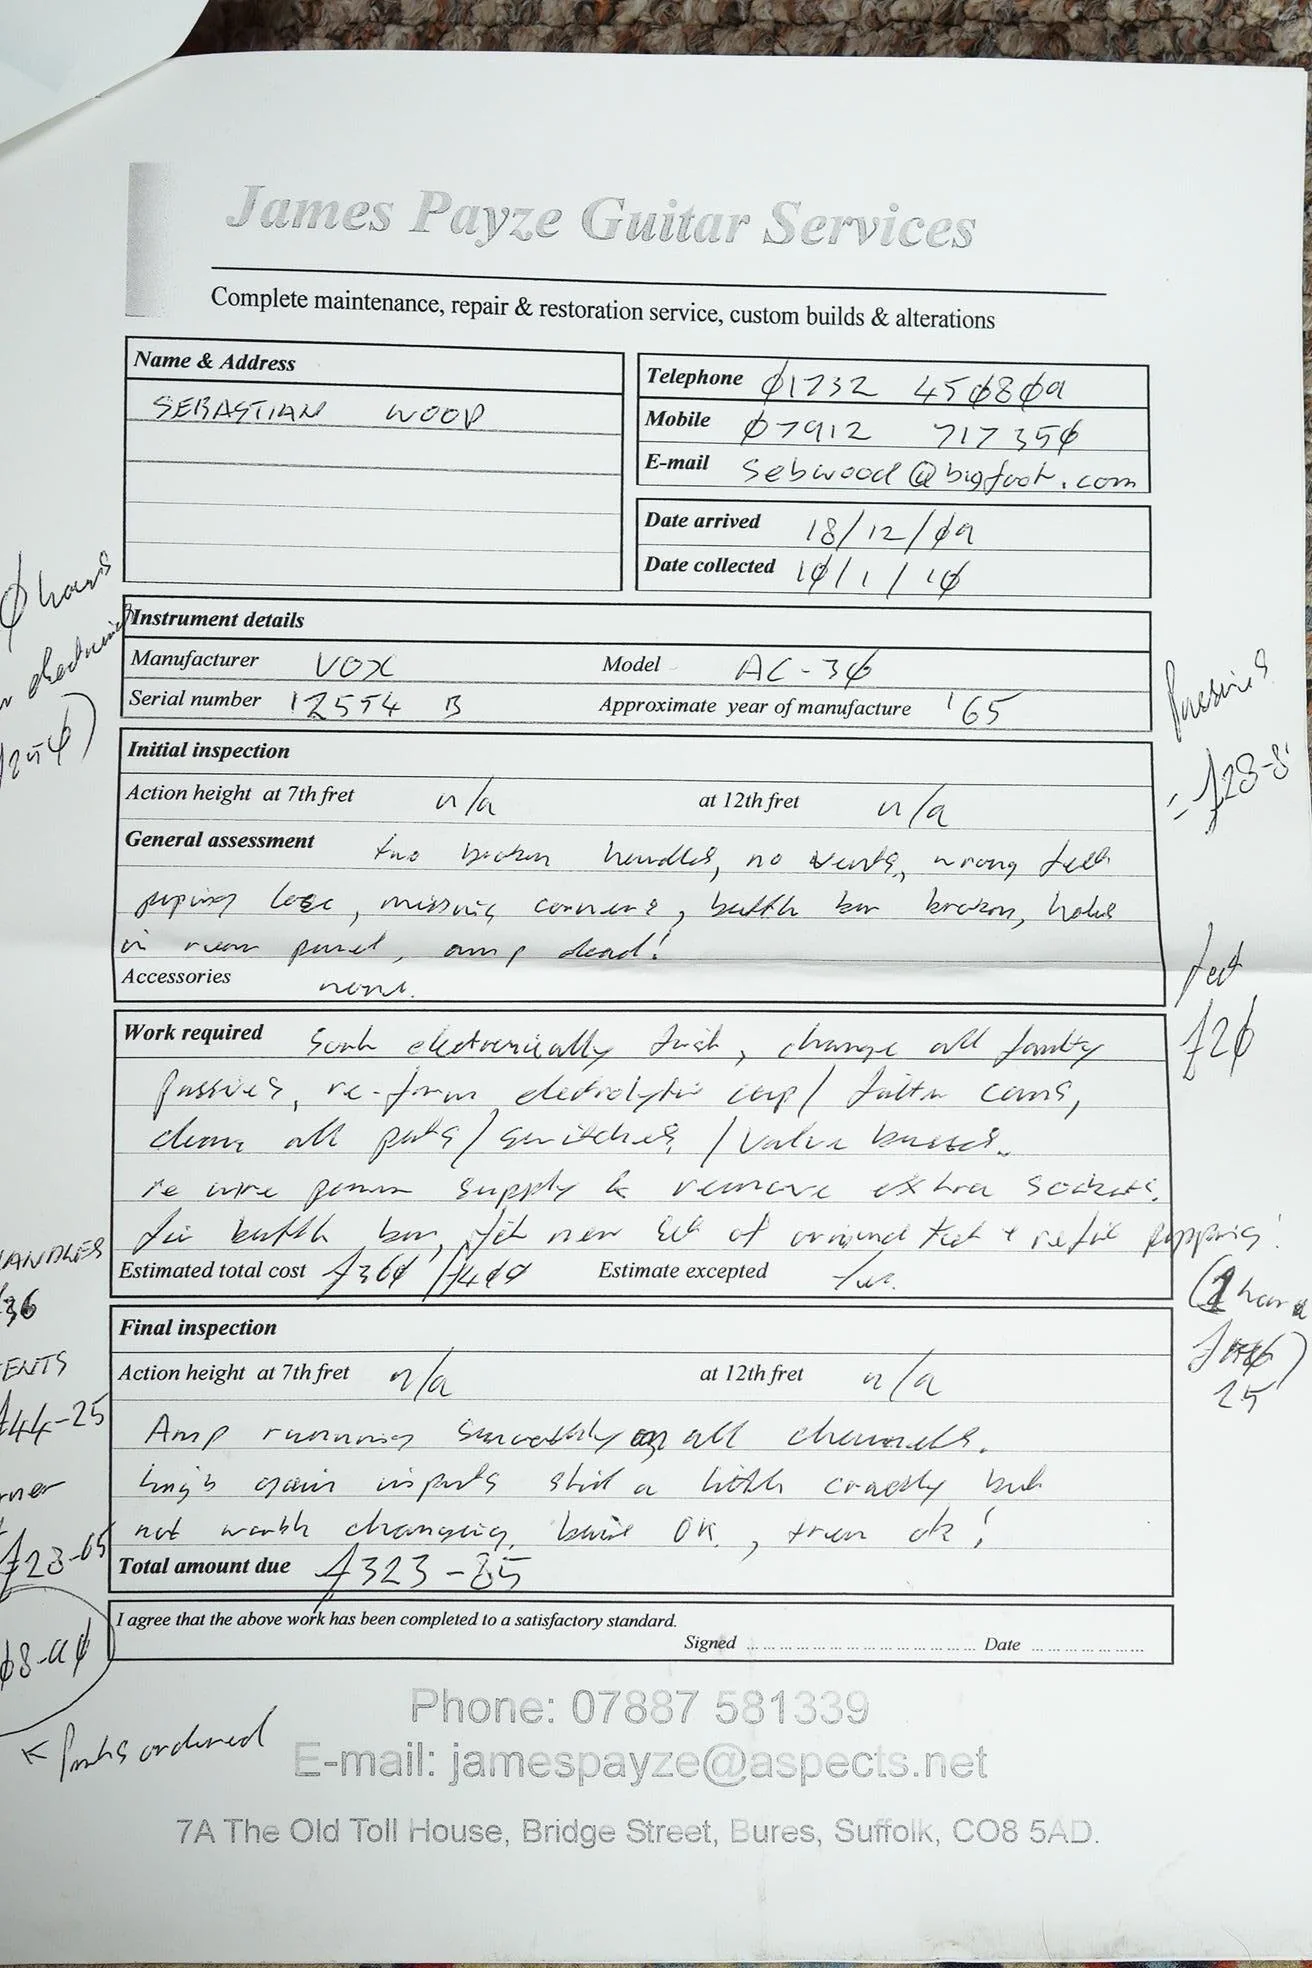 James Payze Guitar Services
Complete maintenance, repair & restoration service, custom builds & alterations
Name & Address
SEBASTIAN WOOD
Telephone 01732 450809
Mobile 07912 717350
E-mail sebwood@bigfoot.com
Date arrived 18/12/09
Date collected 10/1/10
hours
Instrument details
Manufacturer VOX Model AC-30
Serial number 12554 B Approximate year of manufacture '65
Passives
= £28-8
Initial inspection
Action height at 7th fret n/a at 12th fret n/a
General assessment two broken handles, no vents, wrong feet
piping loose, missing corners, bulth bar broken, holes
in rear panel, amp dead!
Accessories none.
feet
£20
Work required electronically first, change all faulty
passives, re-form electrolytic cap/ cans,
clean all pots/switches/valve bases.
re wire power supply & remove extra sockets.
fix bar, fit new set of original feet + refix pipping!
Estimated total cost £360/£400 Estimate excepted Yes.
HANDLES
36
(1 hour
25
Final inspection
Action height at 7th fret n/a at 12th fret n/a
ENTS
£44-25
Amp running smoothly on all channels.
high gain inputs still a little crackly but
not worth changing, OK, trem ok!
rner
£23-65
Total amount due £323-85
I agree that the above work has been completed to a satisfactory standard.
Signed Date
08-90
← Parts ordered
Phone: 07887 581339
E-mail: jamespayze@aspects.net
7A The Old Toll House, Bridge Street, Bures, Suffolk, CO8 5AD.